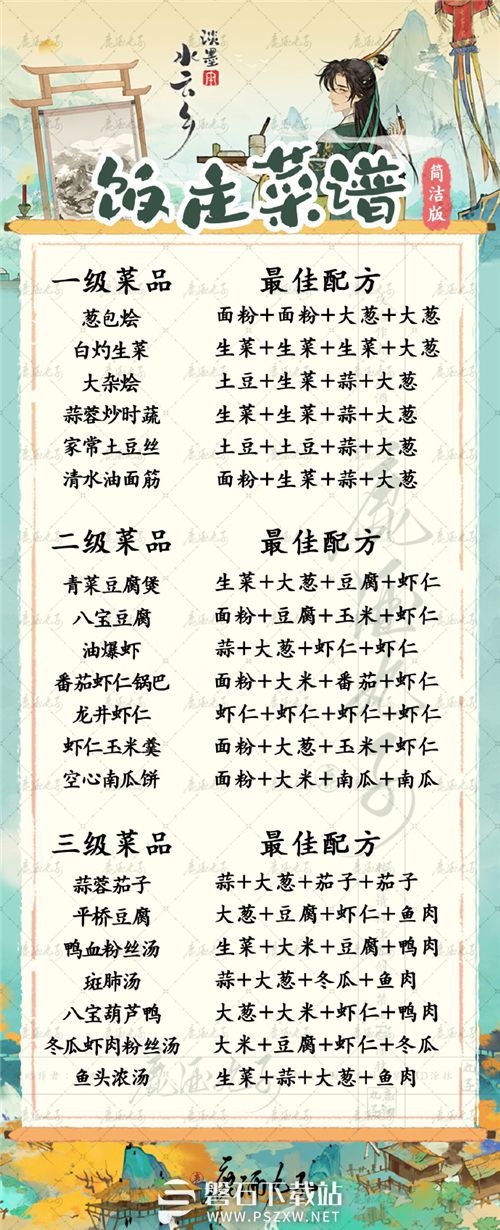 淡墨
水云乡
饭走菜谱
简洁版
一级菜品 最佳配方
葱包烩 面粉+面粉+大葱+大葱
白灼生菜 生菜+生菜+生菜+大葱
大杂烩 土豆+生菜+蒜+大葱
蒜蓉炒时蔬 生菜+生菜+蒜+大葱
家常土豆丝 土豆+土豆+蒜+大葱
清水油面筋 面粉+生菜+蒜+大葱
二级菜品 最佳配方
青菜豆腐煲 生菜+大葱+豆腐+虾仁
八宝豆腐 面粉+豆腐+玉米+虾仁
油爆虾 蒜+大葱+虾仁+虾仁
番茄虾仁锅巴 面粉+大米+番茄+虾仁
龙井虾仁 虾仁+虾仁+虾仁+虾仁
虾仁玉米羹 面粉+大葱+玉米+虾仁
空心南瓜饼 面粉+大米+南瓜+南瓜
三级菜品 最佳配方
蒜蓉茄子 蒜+大葱+茄子+茄子
平桥豆腐 大葱+豆腐+虾仁+鱼肉
鸭血粉丝汤 生菜+大米+豆腐+鸭肉
斑肺汤 蒜+大葱+冬瓜+鱼肉
八宝葫芦鸭 大葱+大米+虾仁+鸭肉
冬瓜虾肉粉丝汤 大米+豆腐+虾仁+冬瓜
鱼头浓汤 生菜+蒜+大葱+鱼肉
磐石下载站
WWW.PSZXW.NET